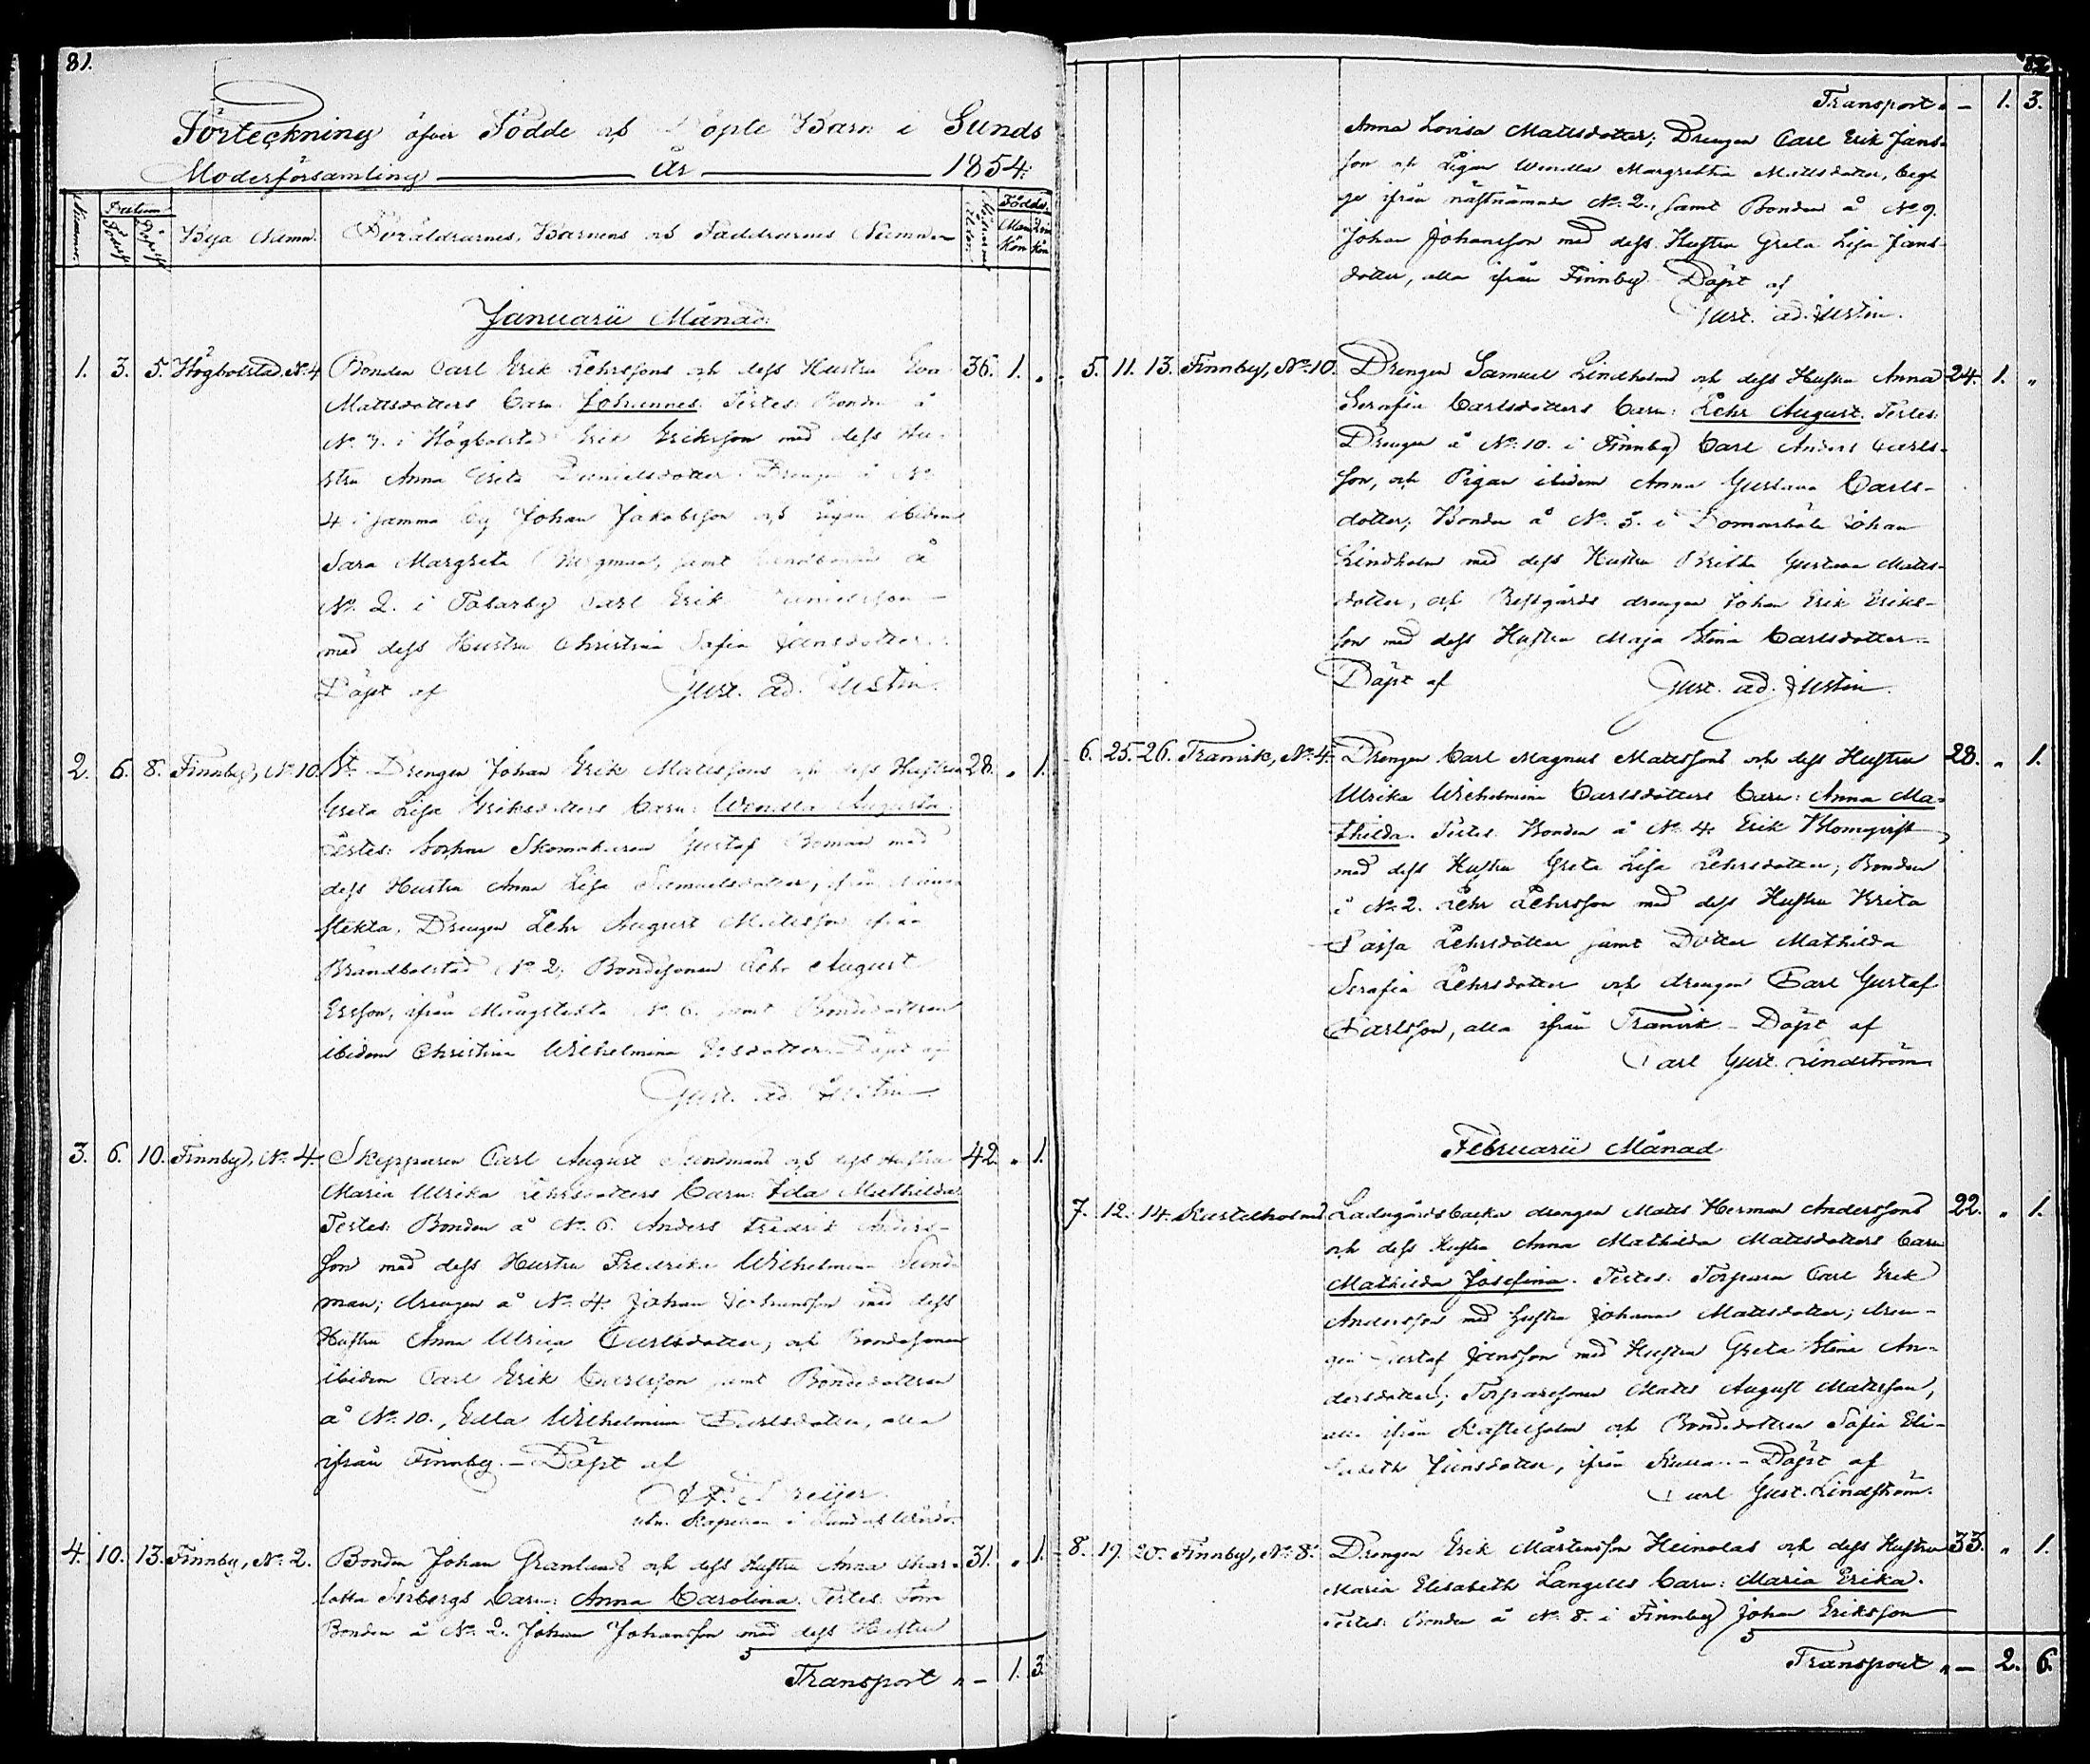 81.
Förteckning öfver Födde och Döpte Barn i Sunds
Moderförsamling År 1854.
Datum
Födde.
Födelse Döpelse Bya Namn. Föräldrarnes, Barnens och Faddrarnes Namn Man Kön Kön
Januarii Månad.
1. 3. 5. Högbolstad, No. 4 Bonden Carl Erik Pehrssons och dess Hustru Eva 36. 1. "
Mattsdotters barn: Johannes. Testes: Bonden å
No. 7. i Högbolstad Eric Ericksson med dess Hu-
stru Anna Greta Danielsdotter. Drengen å No
4 i samma by Johan Jakobsson och Pigan ibidem
Sara Margreta samt å
No. 2. i Tosarby Carl Erik Danielsson
med dess Hustru Christina Sofia Jansdotter.
Döpt af Gust. Ad. Justin.
2. 6. 8. Finnby, No. 10. Drengen Johan Erik Matssons och dess Hustru 28. " 1.
Greta Lisa Eriksdotters barn: Wendla Augusta.
Testes: Sockne Skomakaren Gustaf Boman med
dess Hustru Anna Lisa Samuelsdotter, ifrån Mång-
stekta. Drengen Pehr August Mattsson ifrån
Brändbolstad No 2; Bondesonen Pehr August
Ersson, ifrån Mångstekta No. 6. samt Bondedottren
ibidem Christina Wilhelmina Ersdotter. Döpt af
Gust. Ad. Justin.
3. 6. 10. Finnby, No. 4. Skepparen Carl August Sundmans och dess Hustru 42. " 1.
Maria Ulrika Pehrsdotters barn: Ida Mathilda.
Testes: Bonden å No. 6. Anders Fredrik Anders-
son med dess Hustru Fredrika Wilhelmina Sund-
man; drengen å No. 4. Johan Johansson med dess
Hustru Anna Ulrica Carlsdotter, och Bondesonen
ibidem Carl Erik Carlsson samt Bondedottren
å No. 10., Edla Wilhelmina Carlsdotter, alla
ifrån Finnby. – Döpt af
Dreijer.
Kapellan i Sund och Wårdö.
4. 10. 13. Finnby, No. 2. Bonden Johan Granlunds och dess Hustru Anna Char- 31. " 1.
lotta Serbergs barn: Anna Carolina. Testes: Tom
Bonden å No. 2. Johan Johansson med dess Hustru
Transport " – 1. 3.
82.
Transport " – 1. 3.
Anna Lovisa Mattsdotter; Drengen Carl Erik Jans-
son och Pigan Wendla Margretha Mattsdotter, beg-
ge ifrån nästnämnde No. 2., samt Bonden å No 9.
Johan Johansson med dess Hustru Greta Lisa Jans-
dotter, alla ifrån Finnby. Döpt af
Gust. Ad. Justin.
5. 11. 13. Finnby, No. 10. Drengen Samuel Lindholms och dess Hustru Anna 24. 1. "
Serafia Carlsdotters barn: Pehr August. Testes:
Drengen å No. 10. i Finnby Carl Anders Carls-
son, och Pigan ibidem Anna Gustava Carls-
dotter; Bonden å No. 5. i Domarböle Johan
Lindholm med dess Hustru Britha Gustava Matts-
dotter, och Prestgårds drengen Johan Erik Eriks-
son med dess Hustru Maja Stina Carlsdotter.
Döpt af Gust. Ad. Justin.
6. 25. 26. Tranvik, No. 4. Drengen Carl Magnus Matssons och dess Hustru 28. " 1.
Ulrika Wilhelmina Carlsdotters barn: Anna Ma-
thilda. Testes: Bonden å No. 4. Erik Blomqvist
med dess Hustru Greta Lisa Pehrsdotter; Bonden
å No. 2. Pehr Pehrsson med dess Hustru Brita
Caisa Pehrsdotter samt Dotter Mathilda
Serafia Pehrsdotter och drengen Carl Gustaf
Carlsson, alla ifrån Tranvik. – Döpt af
Carl Gust. Lindström.
Februarii Månad
7. 12. 14. Kastelholm Ladugårdsbacka drengen Mats Herman Anderssons 22. " 1.
och dess Hustru Anna Mathilda Mattsdotters barn
Mathilda Josefina. Testes: Torparen Carl Erik
Andersson med Hustru Johanna Mattsdotter; dren-
gen Gustaf Jansson med Hustru Greta Stina An-
dersdotter; Torparesonen Mats August Matsson,
alla ifrån Kastelholm och Bondedottren Sofia Eli-
sabeth Jansdotter, ifrån – Döpt af
Carl Gust. Lindström.
8. 19. 20. Finnby, No. 8. Drengen Erik Mårtensson Heinolas och dess Hustru 33. " 1.
Maria Elisabeth Langells barn: Maria Erika.
Testes: Bonden å No. 8. i Finnby Johan Eriksson
Transport " – 2. 6.